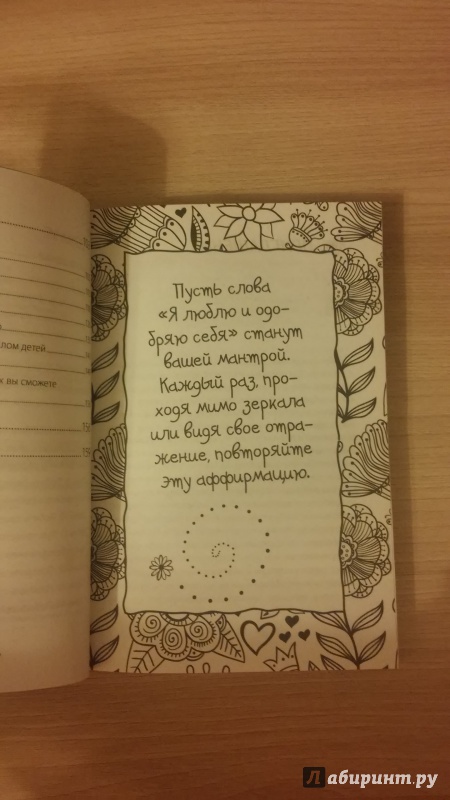 лом детей
х вы сможете
Пусть слова
«Я люблю и одо-
бряю себя» станут
вашей мантрой.
Каждый раз, про-
ходя мимо зеркала
или видя свое отра-
жение, повторяйте
эту аффирмацию.
Лабиринт.ру